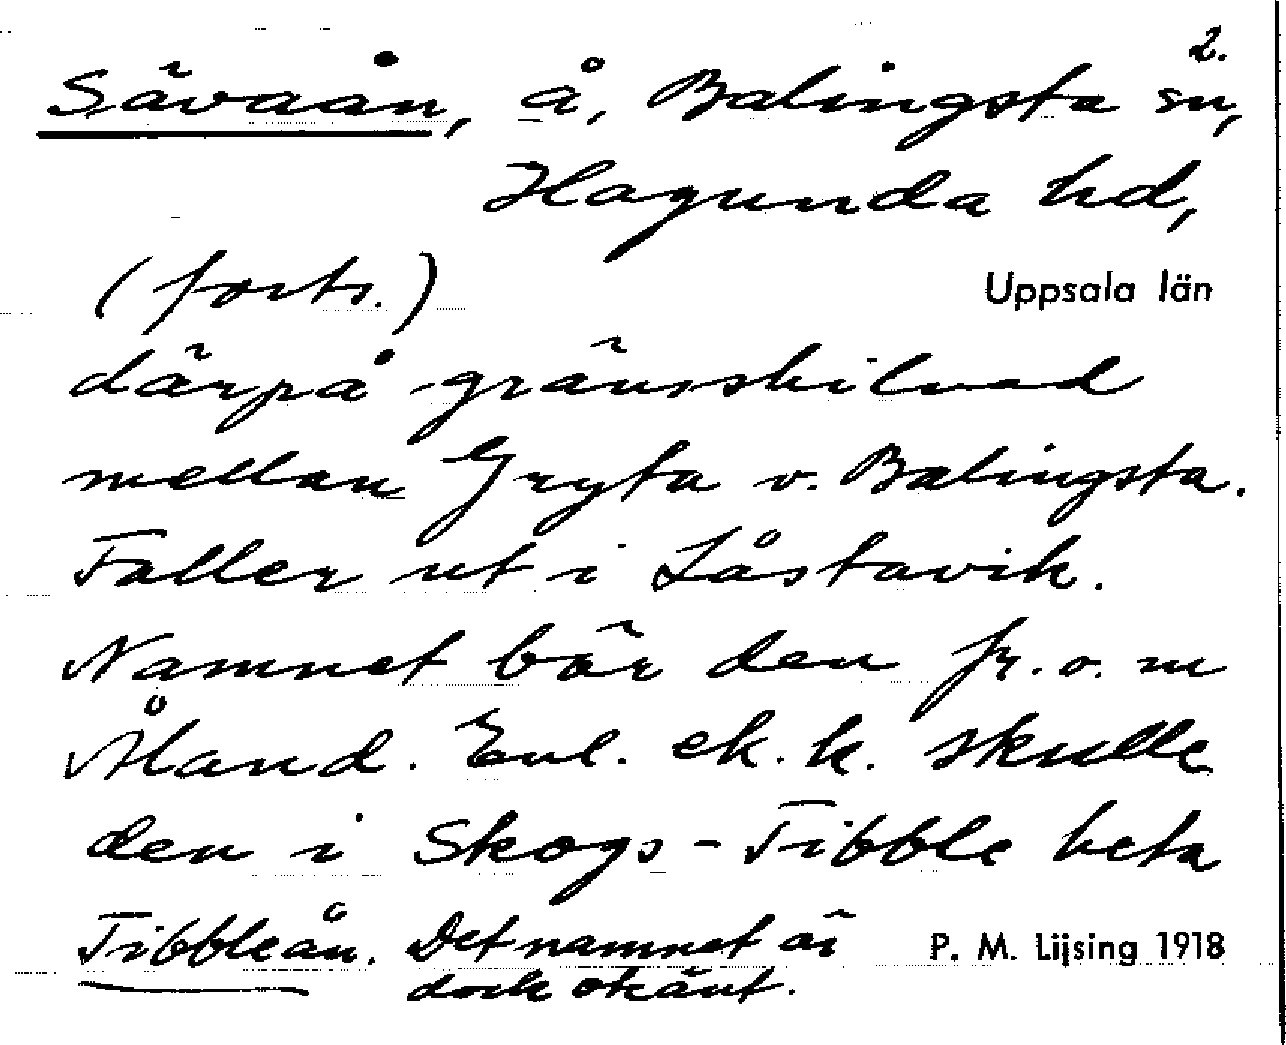 2.
Sävaån, å, Balingsta sn,
Hagunda hd,
(forts.)
Uppsala län
därpå gränsskilnad
mellan Gryta o. Balingsta.
Faller ut i Låstavik.
Namnet bär den fr.o.m
Åland. Enl. ek.k. skulle
den i Skogs-Tibble heta
Tibbleån. Det namnet är
dock okänt.
P. M. Lijsing 1918